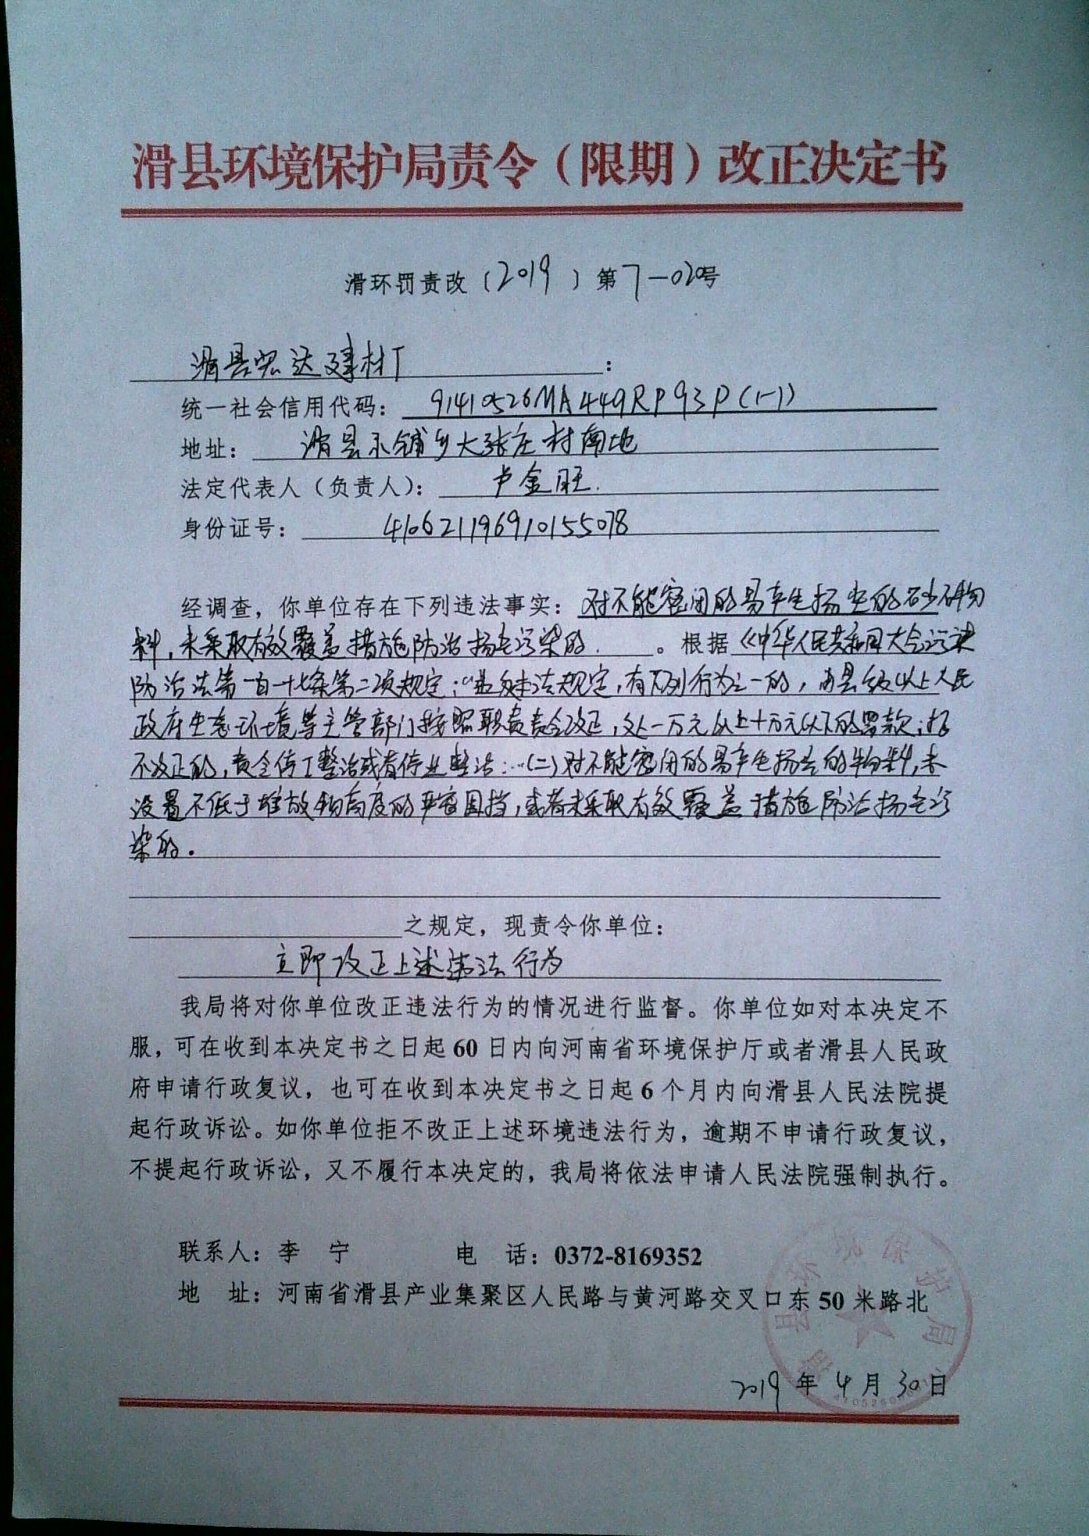 滑县环境保护局责令（限期）改正决定书
滑环罚责改〔2019〕第7—020号
滑县宏达建材厂：
统一社会信用代码：91410526MA449RP93P(1-1)
地址：滑县小铺乡大张庄村南地
法定代表人（负责人）：卢金旺.
身份证号：410621196910155078
经调查，你单位存在下列违法事实：对不能密闭的易产生扬尘的砂石物
料，未采取有效覆盖措施防治扬尘污染的.。根据《中华人民共和国大气污染
防治法第一百一十七条第二项规定：“违反本法规定，有下列行为之一的，由县级以上人民
政府生态环境等主管部门按照职责责令改正，处一万元以上十万元以下的罚款；拒
不改正的，责令停工整治或者停业整治：…(二)对不能密闭的易产生扬尘的物料，未
设置不低于堆放物高度的严密围挡，或者未采取有效覆盖措施防治扬尘污
染的.
之规定，现责令你单位：
立即改正上述违法行为
我局将对你单位改正违法行为的情况进行监督。你单位如对本决定不
服，可在收到本决定书之日起60日内向河南省环境保护厅或者滑县人民政
府申请行政复议，也可在收到本决定书之日起6个月内向滑县人民法院提
起行政诉讼。如你单位拒不改正上述环境违法行为，逾期不申请行政复议，
不提起行政诉讼，又不履行本决定的，我局将依法申请人民法院强制执行。
联系人：李 宁 电 话：0372-8169352
地 址：河南省滑县产业集聚区人民路与黄河路交叉口东50米路北
滑县环境保护局
2019年4月30日